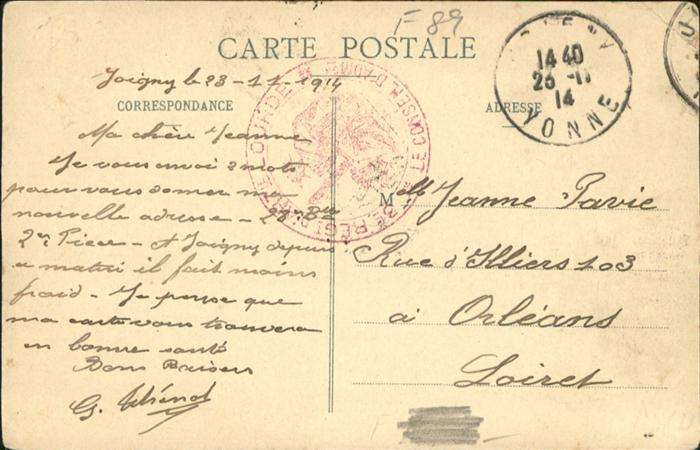 F 89
CARTE POSTALE
Joigny le 23-11-1914
CORRESPONDANCE
ADRESSE
Ma chère Jeanne
Je vous envoi 2 mots
pour vous donner ma
nouvelle adresse - 23er Btie
2er Pièce - A Joigny depuis
ce matin il fait moins
froid - Je pense que
ma carte vous trouvera
en bonne santé
Bons Baisers
G. Thénot
Melle Jeanne Pavie
Rue d'Illiers 103
à Orléans
Loiret
14 40
23 -11
14
YONNE
LE CONSEIL D'ADM
LOURDE